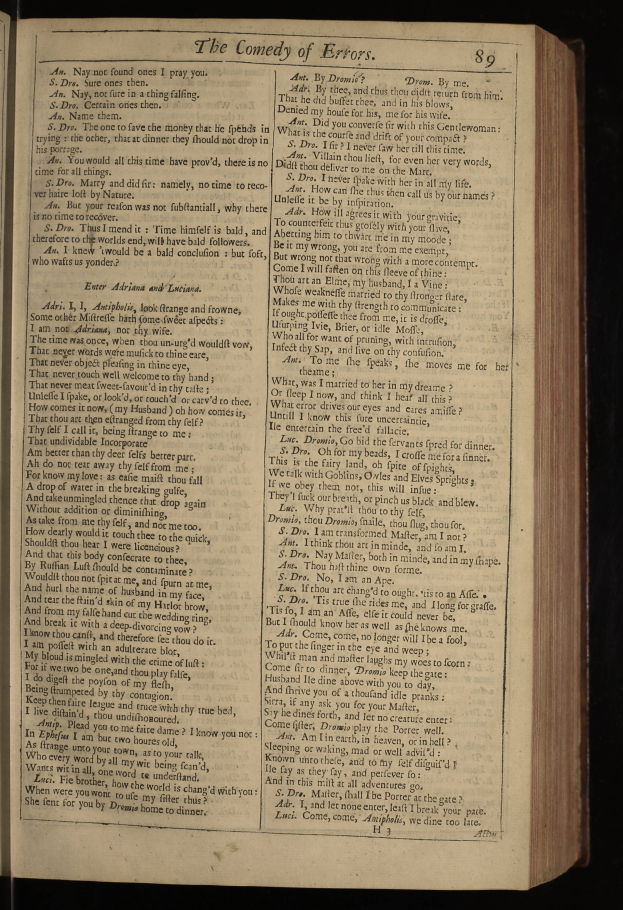 The Comedy of Errors.
89
An. Nay not sound ones I pray you.
S. Dro. Sure ones then.
An. Nay, not sure in a thing falsing.
S. Dro. Certain ones then.
An. Name them.
S. Dro. The one to save the money that he spends in
trying : the other, that at dinner they should not drop in
his porrage.
An. You would all this time have prov'd, there is no
time for all things.
S. Dro. Marry and did sir: namely, no time to reco-
ver haire lost by Nature.
An. But your reason was not substantiall, why there
is no time to recover.
S. Dro. Thus I mend it : Time himself is bald, and
therefore to the worlds end, will have bald followers.
An. I knew 'twould be a bald conclusion : but soft,
who wafts us yonder?
Enter Adriana and Luciana.
Adri. I, I, Antipholis, look strange and frowne,
Some other Mistresse hath some sweet aspects :
I am not Adriana, nor thy wife.
The time was once, when thou un-urg'd wouldst vow,
That never words were musick to thine eare,
That never object pleasing in thine eye,
That never touch well welcome to thy hand ;
That never meat sweet-savour'd in thy taste ;
Unlesse I spake, or look'd, or touch'd or carv'd to thee.
How comes it now, (my Husband) oh how comes it,
That thou art then estranged from thy self ?
Thy self I call it, being strange to me :
That undividable Incorporate
Am better than thy deer selfs better part.
Ah do not tear away thy self from me ;
For know my love : as easie maist thou fall
A drop of water in the breaking gulfe,
And take unmingled thence that drop again
Without addition or diminishing,
As take from me thy self, and not me too.
How dearly would it touch thee to the quick,
Shouldst thou hear I were licencious ?
And that this body consecrate to thee,
By Ruffian Lust should be contaminate ?
Wouldst thou not spit at me, and spurn at me,
And hurl the name of husband in my face,
And tear the stain'd skin of my Harlot brow,
And from my false hand cut the wedding ring,
And break it with a deep-divorcing vow ?
I know thou canst, and therefore see thou do it.
I am possest with an adulterate blot,
My bloud is mingled with the crime of lust :
For if we two be one, and thou play false,
I do digest the poyson of thy flesh,
Being strumpeted by thy contagion.
Keep then faire league and truce with thy true bed,
I live distain'd, thou undishonoured.
Antip. Plead you to me faire dame ? I know you not :
In Ephesus I am but two houres old,
As strange unto your town, as to your talk,
Who every word by all my wit being scan'd,
Wants wit in all, one word to understand.
Luci. Fie brother, how the world is chang'd with you :
When were you wont to use my sister thus ?
She sent for you by Dromio home to dinner.
Ant. By Dromio ? Drom. By me.
Adr. By thee, and thus thou didst return from him.
That he did buffet thee, and in his blows,
Denied my house for his, me for his wife.
Ant. Did you converse sir with this Gentlewoman :
What is the course and drift of your compact ?
S. Dro. I sir ? I never saw her till this time.
Ant. Villain thou liest, for even her very words,
Didst thou deliver to me on the Mart.
S. Dro. I never spake with her in all my life.
Ant. How can she thus then call us by our names ?
Unlesse it be by inspiration.
Adr. How ill agrees it with your gravitie,
To counterfeit thus grosely with your slave,
Abetting him to thwart me in my moode ;
Be it my wrong, you are from me exempt,
But wrong not that wrong with a more contempt.
Come I will fasten on this sleeve of thine :
Thou art an Elme, my husband, I a Vine :
Whose weaknesse married to thy stronger state,
Makes me with thy strength to communicate :
If ought possesse thee from me, it is drosse,
Usurping Ivie, Brier, or idle Mosse,
Who all for want of pruning, with intrusion,
Infect thy Sap, and live on thy confusion.
Ant. To me she speaks, she moves me for her
theame ;
What, was I married to her in my dreame ?
Or sleep I now, and think I hear all this ?
What error drives our eyes and eares amisse ?
Untill I know this sure uncertaintie,
Ile entertain the free'd fallacie.
Luc. Dromio, Go bid the servants spred for dinner.
S. Dro. Oh for my beads, I crosse me for a sinner.
This is the fairy land, oh spite of spights,
We talk with Goblins, Owles and Elves Sprights ;
If we obey them not, this will insue :
They'l suck our breath, or pinch us black and blew.
Luc. Why prat'st thou to thy self,
Dromio, thou Dromio, snaile, thou slug, thou sot.
S. Dro. I am transformed Master, am I not ?
Ant. I think thou art in minde, and so am I.
S. Dro. Nay Master, both in minde, and in my shape.
Ant. Thou hast thine own forme.
S. Dro. No, I am an Ape.
Luc. If thou art chang'd to ought, 'tis to an Asse.
S. Dro. 'Tis true she rides me, and I long for grasse.
'Tis so, I am an Asse, else it could never be,
But I should know her as well as she knows me.
Adr. Come, come, no longer will I be a fool,
To put the finger in the eye and weep ;
Whil'st man and master laughs my woes to scorn :
Come sir to dinner, Dromio keep the gate :
Husband Ile dine above with you to day,
And shrive you of a thousand idle pranks :
Sirra, if any ask you for your Master,
Say he dines forth, and let no creature enter :
Come sister, Dromio play the Porter well.
Ant. Am I in earth, in heaven, or in hell ?
Sleeping or waking, mad or well advis'd :
Known unto these, and to my self disguis'd !
Ile say as they say, and persever so :
And in this mist at all adventures go.
S. Dro. Master, shall I be Porter at the gate ?
Adr. I, and let none enter, least I break your pate.
Luci. Come, come, Antipholis, we dine too late.
H 3